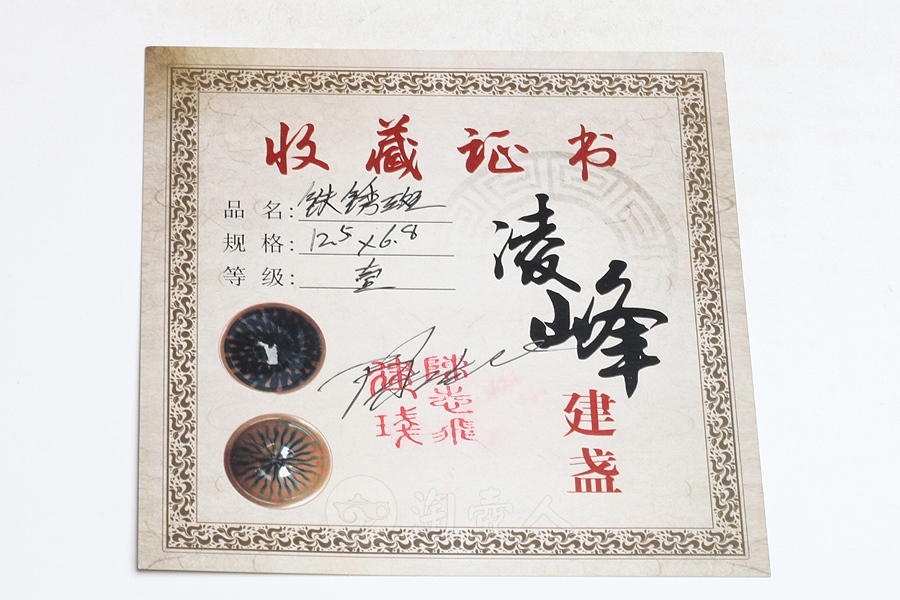 收藏证书
品名：铁锈斑
规格：12.5×6.8
等级：壹
凌峰
建盏
淘需人